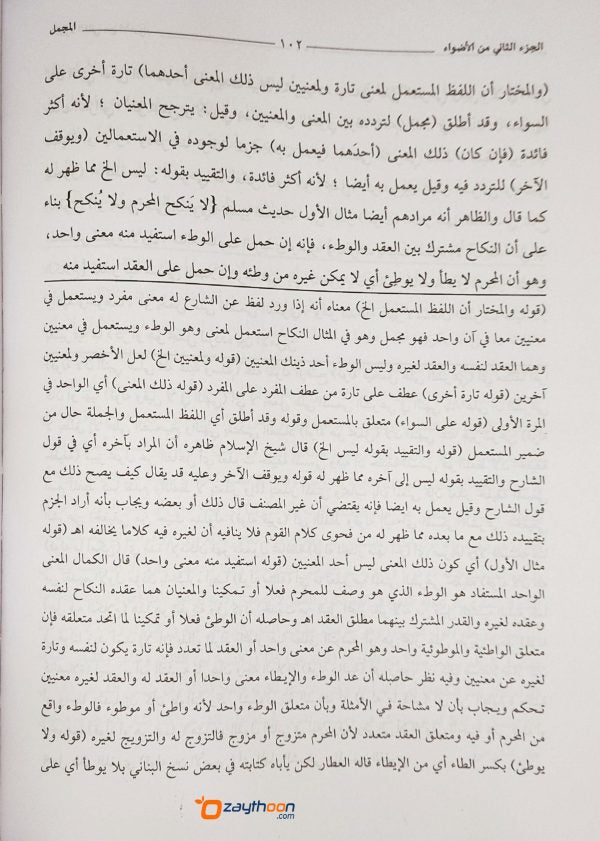 الجزء الثاني من الأضواء ١٠٢ المجمل
(والمختار أن اللفظ المستعمل لمعنى تارة ولمعنيين ليس ذلك المعنى أحدهما) تارة أخرى على
السواء، وقد أطلق (مجمل) لتردده بين المعنى والمعنيين، وقيل: يترجح المعنيان ؛ لأنه أكثر
فائدة (فإن كان) ذلك المعنى (أحدَهما فيعمل به) جزما لوجوده في الاستعمالين (ويوقف
الآخر) للتردد فيه وقيل يعمل به أيضا ؛ لأنه أكثر فائدة، والتقييد بقوله: ليس الخ مما ظهر له
كما قال والظاهر أنه مرادهم أيضا مثال الأول حديث مسلم {لا يَنكح المحرم ولا يُنكح} بناء
على أن النكاح مشترك بين العقد والوطء، فإنه إن حمل على الوطء استفيد منه معنى واحد،
وهو أن المحرم لا يطأ ولا يوطِئ أي لا يمكن غيره من وطئه وإن حمل على العقد استفيد منه
(قوله والمختار أن اللفظ المستعمل الخ) معناه أنه إذا ورد لفظ عن الشارع له معنى مفرد ويستعمل في
معنيين معا في آن واحد فهو مجمل وهو في المثال النكاح استعمل لمعنى وهو الوطء ويستعمل في معنيين
وهما العقد لنفسه والعقد لغيره وليس الوطء أحد ذينك المعنيين (قوله ولمعنيين الخ) لعل الأخصر ولمعنيين
آخرين (قوله تارة أخرى) عطف على تارة من عطف المفرد على المفرد (قوله ذلك المعنى) أي الواحد في
المرة الأولى (قوله على السواء) متعلق بالمستعمل وقوله وقد أطلق أي اللفظ المستعمل والجملة حال من
ضمير المستعمل (قوله والتقييد بقوله ليس الخ) قال شيخ الإسلام ظاهره أن المراد بآخره أي في قول
الشارح والتقييد بقوله ليس إلى آخره مما ظهر له قوله ويوقف الآخر وعليه قد يقال كيف يصح ذلك مع
قول الشارح وقيل يعمل به ايضا فإنه يقتضي أن غير المصنف قال ذلك أو بعضه ويجاب بأنه أراد الجزم
بتقييده ذلك مع ما بعده مما ظهر له من فحوى كلام القوم فلا ينافيه أن لغيره فيه كلاما يخالفه اهـ (قوله
مثال الأول) أي كون ذلك المعنى ليس أحد المعنيين (قوله استفيد منه معنى واحد) قال الكمال المعنى
الواحد المستفاد هو الوطء الذي هو وصف للمحرم فعلا أو تمكينا والمعنيان هما عقده النكاح لنفسه
وعقده لغيره والقدر المشترك بينهما مطلق العقد اهـ وحاصله أن الوطئ فعلا أو تمكينا لما اتحد متعلقه فإن
متعلق الواطئية والموطوئية واحد وهو المحرم عن معنى واحد أو العقد لما تعدد فإنه تارة يكون لنفسه وتارة
لغيره عن معنيين وفيه نظر حاصله أن عد الوطء والإيطاء معنى واحدا أو العقد له والعقد لغيره معنيين
تحكم ويجاب بأن لا مشاحة في الأمثلة وبأن متعلق الوطء واحد لأنه واطئ أو موطوء فالوطء واقع
من المحرم أو فيه ومتعلق العقد متعدد لأن المحرم متزوج أو مزوج فالتزوج له والتزويج لغيره (قوله ولا
يوطئ) بكسر الطاء أي من الإيطاء قاله العطار لكن يأباه كتابته في بعض نسخ البناني بلا يوطأ أي على
zaythoon
.com